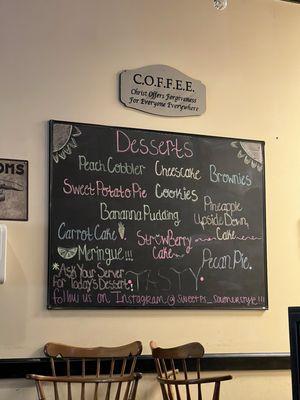 C.O.F.F.E.E.
Christ Offers Forgiveness
For Everyone Everywhere
OMS
Desserts
Peach Cobbler Cheesecake Brownies
Sweet Potato Pie Cookies
Bananna Pudding
Pineapple
Upside Down
Cake
Carrot Cake
Strawberry
Cake
Meringue!!!
Pecan Pie
*Ask Your Server
For Today's Dessert!
TASTY
follow us on Instagram @